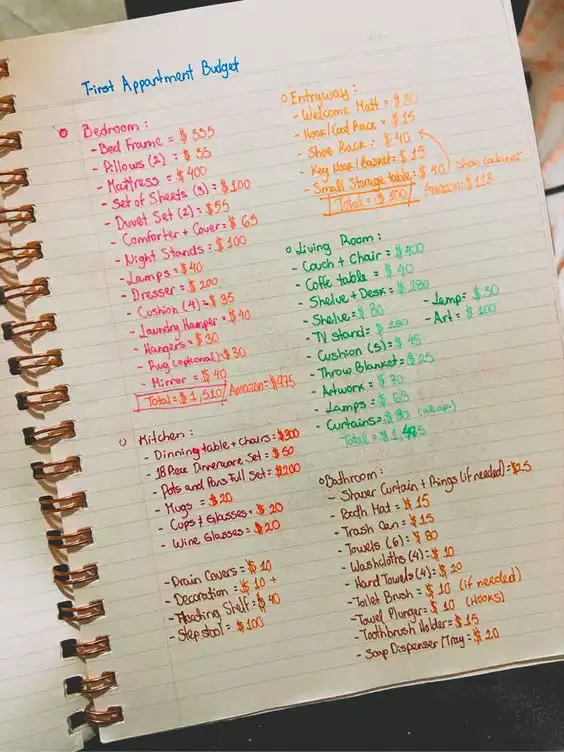 First Appartment Budget
o Bedroom :
- Bed Frame = $ 555
- Pillows (2) = $ 55
- Mattress = $ 400
- Set of Sheets (3) = $100
- Duvet Set (2) = $55
- Comforter + Cover = $ 65
- Night Stands = $100
- Lamps = $40
- Dresser = $ 200
- Cushion (4) = $ 35
- Laundry Hamper = $40
- Hangers = $30
- Rug (optional) = $30
- Mirror = $ 40
Total = $ 1,510 Amazon = $975
o Kitchen :
- Dinning table + Chairs = $300
- 18 Piece Dinnerware Set = $ 50
- Pots and Pans Full Set = $200
- Mugs = $20
- Cups + Glasses = $ 20
- Wine Glasses = $20
- Drain Covers = $ 10
- Decoration = $ 10 +
- Floating Shelf = $ 40
- Step stool = $100
o Entryway :
- Welcome Matt = $ 30
- Hook/Coat Rack = $ 15
- Shoe Rack = $ 40
- Key Hook/Basket = $ 15
- Small Storage table = $ 40 shoe cabinet
Total = $ 100 Amazon: $113
o Living Room :
- Couch + Chair = $400
- Coffe table = $ 40
- Shelve + Desk = $ 280
- Shelve = $ 80 - Lamp = $ 30
- TV stand = $ 280 - Art = $ 100
- Cushion (5) = $ 45
- Throw Blanket = $ 25
- Artwork = $ 70
- Lamps = $ 65
- Curtains = $ 80
Total = $ 1,
o Bathroom :
- Shower Curtain + Rings (if needed) = $25
- Bath Mat = $ 15
- Trash Can = $ 15
- Towels (6) = $ 80
- Washcloths (4) = $ 10
- Hand Towels (4) = $ 20
- Toilet Brush = $ 10 (if needed)
- Towel Plunger = $ 10 (Hooks)
- Toothbrush Holder = $ 15
- Soap Dispenser /Tray = $ 20